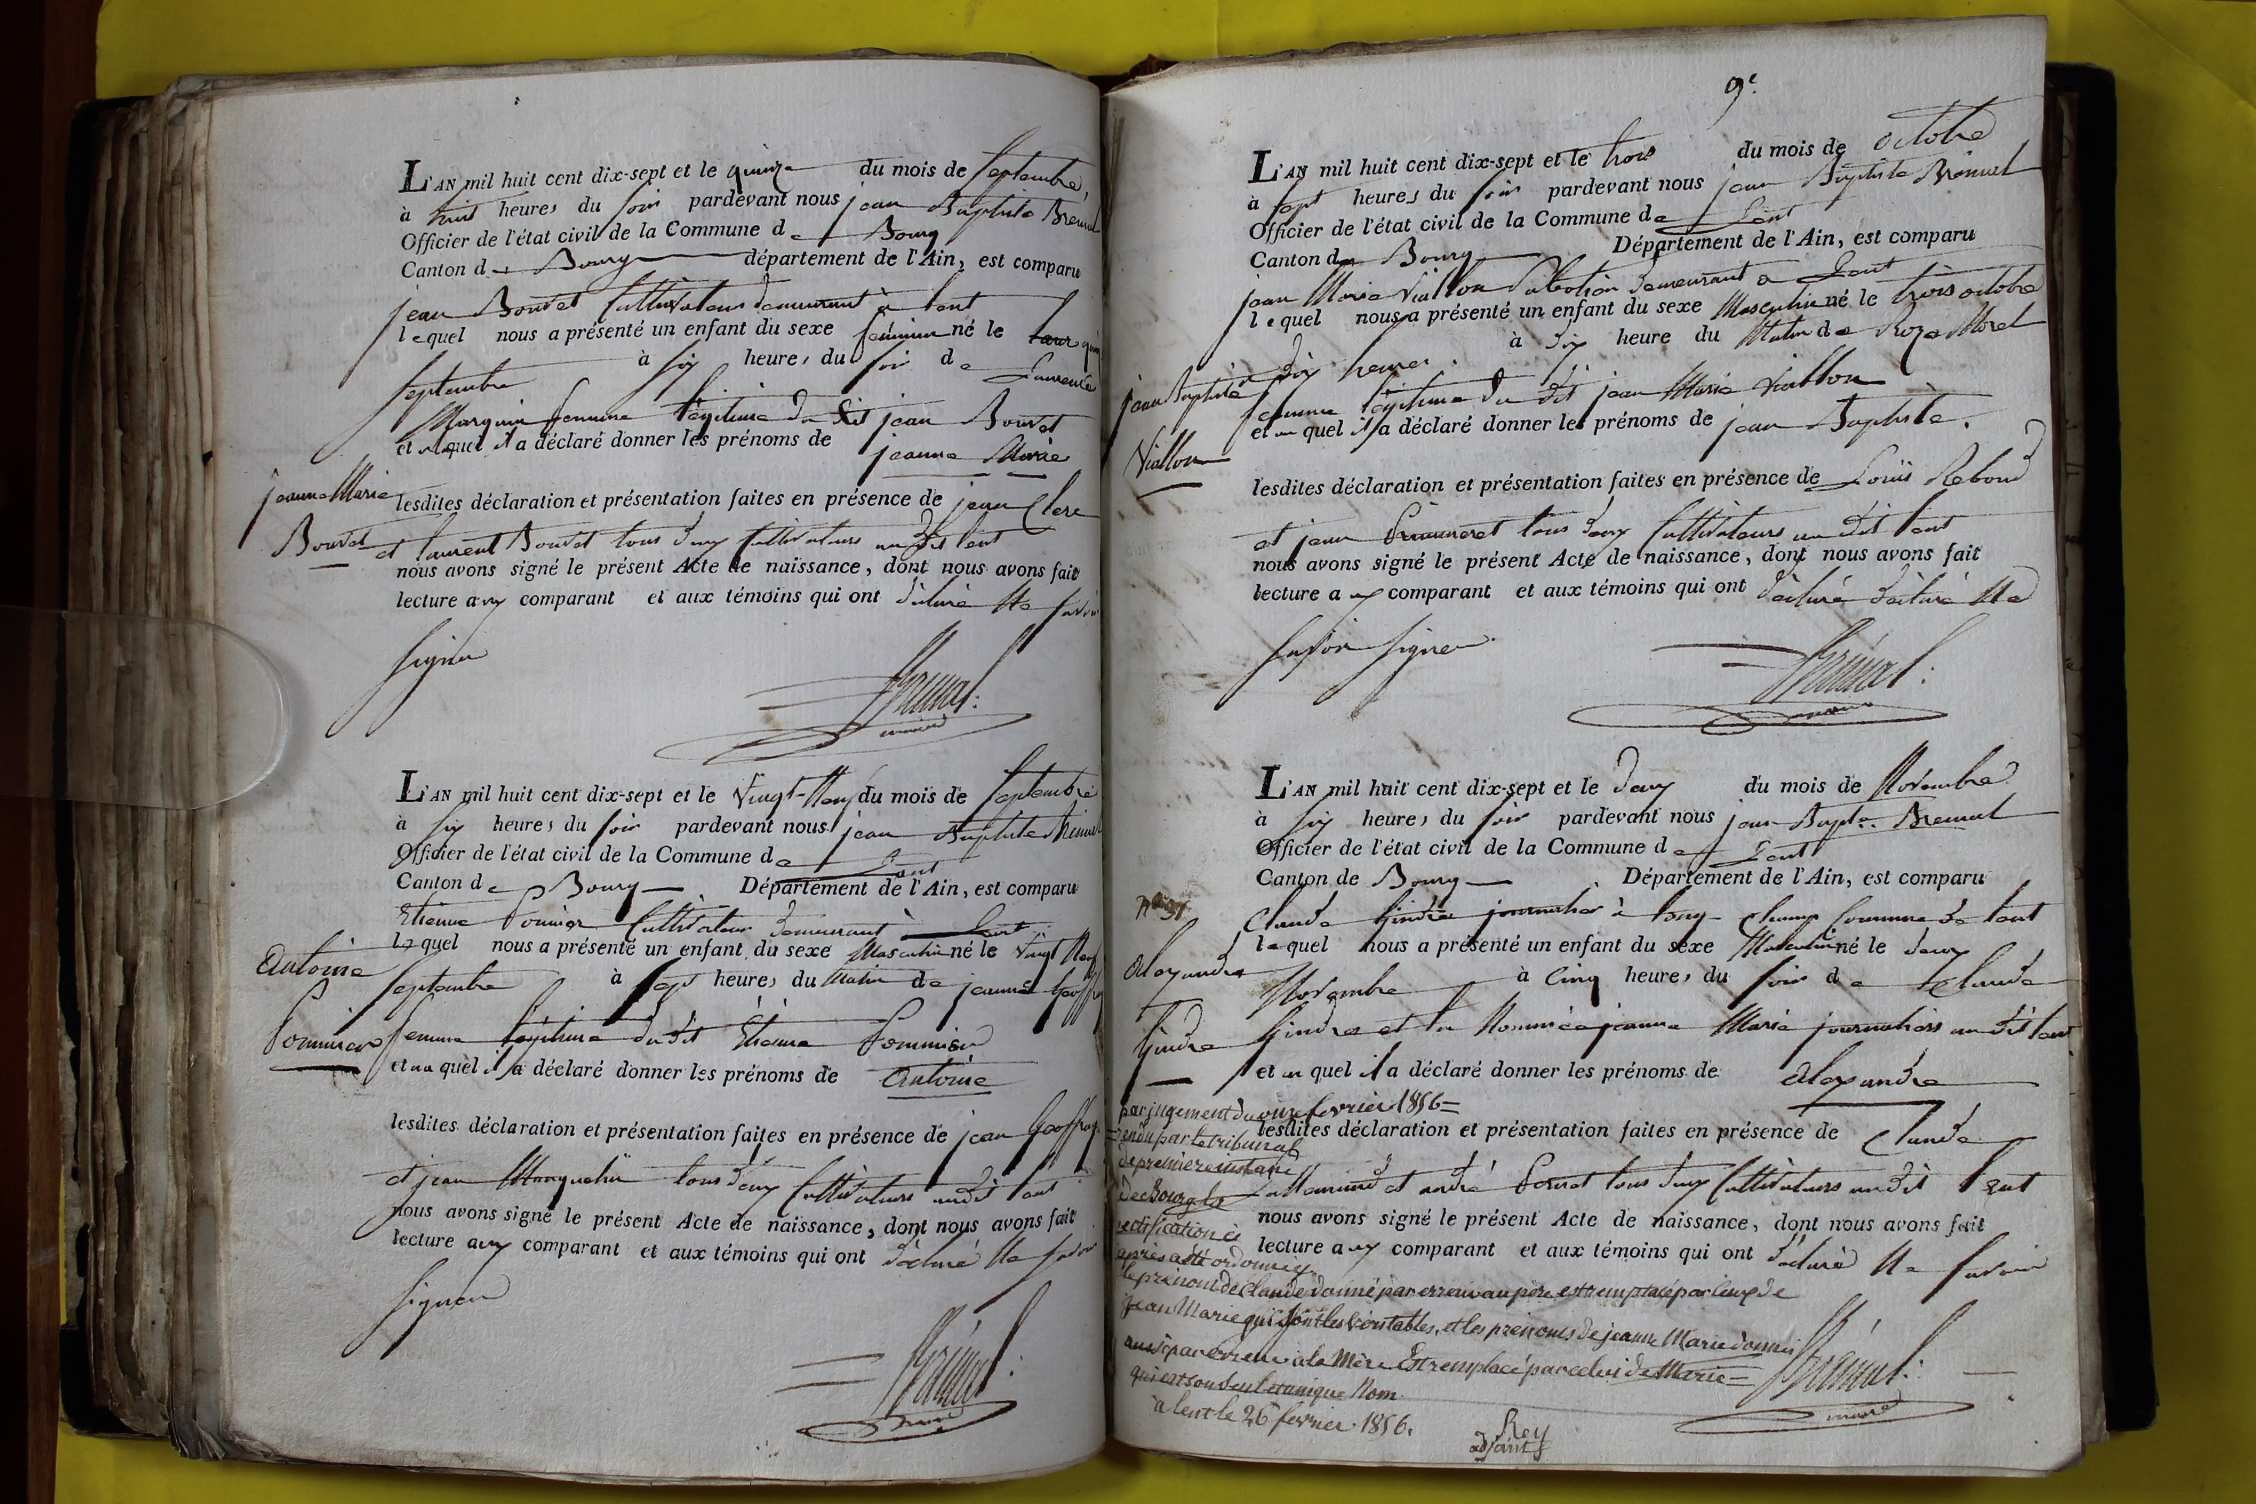 L'AN mil huit cent dix-sept et le quinze du mois de Septembre,
à huit heures du soir pardevant nous jean Baptiste Brémal
Officier de l'état civil de la Commune de Bourg
Canton de Bourg département de l'Ain, est comparu
jean Bouvet Cultivateur demeurant à lent
lequel nous a présenté un enfant du sexe féminin né le
septembre à six heures du soir de Laurence
Marguin femme légitime du dit jean Bouvet
et auquel il a déclaré donner les prénoms de jeanne Marie
jeanne Marie
Bouvet
lesdites déclaration et présentation faites en présence de jean Clerc
et laurent Bouvet tous deux Cultivateurs audit lent
nous avons signé le présent Acte de naissance, dont nous avons fait
lecture aux comparant et aux témoins qui ont déclaré Ne savoir
signer
Brémal
maire
L'AN mil huit cent dix-sept et le Vingt-Neuf du mois de Septembre
à six heures du soir pardevant nous jean Baptiste Brémal
Officier de l'état civil de la Commune de Lent
Canton de Bourg Département de l'Ain, est comparu
Etienne Pommier Cultivateur demeurant à Lent
lequel nous a présenté un enfant du sexe Masculin né le Vingt Neuf
septembre à sept heures du Matin de jeanne Geoffray
femme légitime dudit Etienne Pommier
et auquel il a déclaré donner les prénoms de Antoine
Antoine
Pommier
lesdites déclaration et présentation faites en présence de jean Geoffray
et jean tous deux Cultivateurs audit lent
nous avons signé le présent Acte de naissance, dont nous avons fait
lecture aux comparant et aux témoins qui ont déclaré Ne savoir
signer
Brémal
maire
9e.
L'AN mil huit cent dix-sept et le trois du mois de octobre
à sept heures du soir pardevant nous jean Baptiste Brémal
Officier de l'état civil de la Commune de Lent
Canton de Bourg Département de l'Ain, est comparu
jean Marie Viallon demeurant à Lent
lequel nous a présenté un enfant du sexe Masculin né le trois octobre
à dix heures. à dix heure du Matin de Roze Morel
femme légitime du dit jean Marie Viallon
et auquel il a déclaré donner les prénoms de jean Baptiste.
jean Baptiste
Viallon
lesdites déclaration et présentation faites en présence de Loüis Reboud
et jean tous deux Cultivateurs audit lent
nous avons signé le présent Acte de naissance, dont nous avons fait
lecture aux comparant et aux témoins qui ont déclaré déclaré Ne
savoir signer
Brémal
maire
L'AN mil huit cent dix-sept et le deux du mois de Novembre
à six heures du soir pardevant nous jean Bapte. Brémal
Officier de l'état civil de la Commune de Lent
Canton de Bourg Département de l'Ain, est comparu
Claude Gindre journalier à long-champ Commune de lent
lequel nous a présenté un enfant du sexe Masculin né le deux
Novembre à Cinq heures du soir de Claude
Gindre et la Nommée jeanne Marie journaliers audit lent
et auquel il a déclaré donner les prénoms de Alexandre
Alexandre
Gindre
lesdites déclaration et présentation faites en présence de Claude
Lallemand et andré tous deux Cultivateurs audit lent
nous avons signé le présent Acte de naissance, dont nous avons fait
lecture aux comparant et aux témoins qui ont déclaré Ne savoir
par jugement du onze fevrier 1856=
rendu par le tribunal
de première instance
de Bourg la
rectification ci
après a été ordonnée
le prénom de Claude donné par erreur au père est remplacé par ceux de
jean Marie qui sont les véritables, et les prénoms de jeanne Marie donnés
aussi par erreur à la Mère Est remplacé par celui de Marie=
qui est son seul et unique Nom.
à lent le 26 fevrier 1856.
Rey
adjoint
Brémal
maire